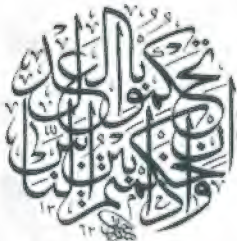 وإذا حكمتم بين الناس
أن تحكموا بالعدل